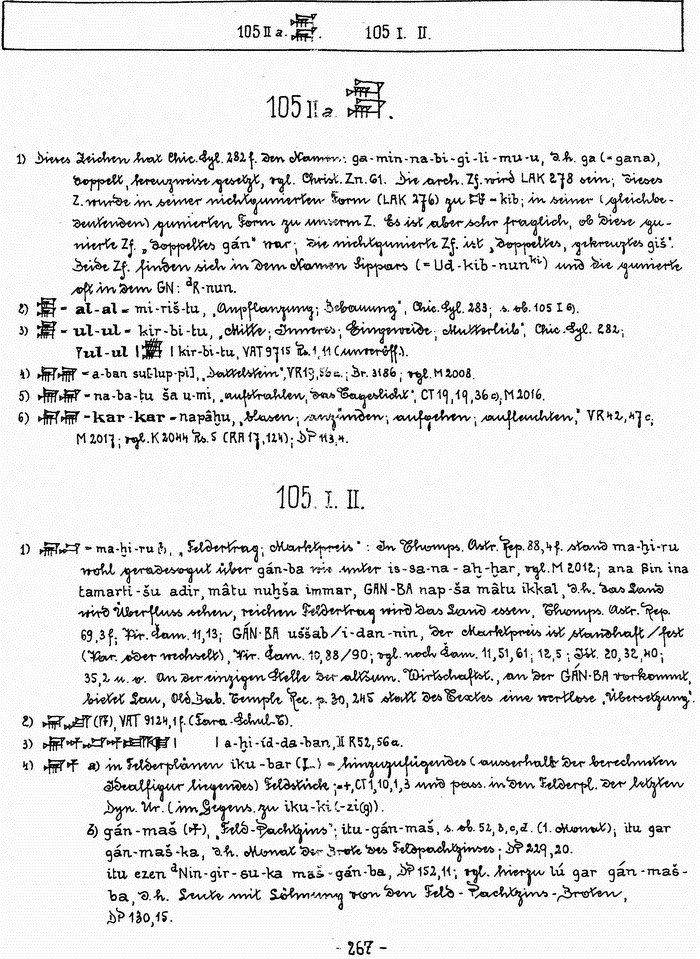 105 II a. 𒃶. 105 I. II.
105 II a. 𒃶.
1) Dieses Zeichen hat Chic. Syl. 282 f. den Namen: ga-min-na-bi-gi-li-mu-u, d.h. ga (= gana),
doppelt, kreuzweise gesetzt, vgl. Christ. Zn. 61. Die arch. Zf. wird LAK 278 sein; dieses
Z. wurde in seiner nichtgunierten Form (LAK 276) zu = kib; in seiner (gleichbe-
deutenden) gunierten Form zu unserm Z. Es ist aber sehr fraglich, ob diese gu-
nierte Zf. „doppeltes gán" war; die nichtgunierte Zf. ist „doppeltes, gekreuztes giš".
Beide Zf. finden sich in dem Namen Sippars (= Ud-kib-nunki) und die gunierte
oft in dem GN: dK-nun.
2) = al-al = mi-riš-tu, „Anpflanzung; Bebauung", Chic. Syl. 283; s. ob. 105 I 6).
3) = ul-ul = kir-bi-tu, „Mitte; Inneres; Eingeweide; Mutterleib", Chic. Syl. 282;
ul-ul | | kir-bi-tu, VAT 9715 Rs. 1, 11 (unveröff.).
4) = a-ban su[-lup-pi], „Dattelstein", VR 19, 56 a.; Br. 3186; vgl. M 2008.
5) = na-ba-ṭu ša u-mi, „aufstrahlen, das Tageslicht", CT 19, 19, 36 c), M 2016.
6) = kar-kar = napâḫu, „blasen; anzünden; aufgehen; aufleuchten," VR 42, 47 c;
M 2017; vgl. K 2044 Rs. 5 (RA 17, 124); DP 113, 4.
105. I. II.
1) = ma-ḫi-ru, „Feldertrag; Marktpreis": In Thomps. Astr. Rep. 88, 4 f. stand ma-ḫi-ru
wohl geradesogut über gán-ba wie unter is-sa-na-aḫ-ḫar, vgl. M 2012; ana Sin ina
tamarti-šu adir, mâtu nuḫša immar, GAN-BA nap-ša mâtu ikkal, d.h. das Land
wird Überfluss sehen, reichen Feldertrag wird das Land essen, Thomps. Astr. Rep.
69, 3 f.; Vir. Šam. 11, 13; GÁN-BA uššab/i-dan-nin, der Marktpreis ist standhaft/fest
(Var. oder wechselt), Vir. Šam. 10, 88/90; vgl. noch Šam. 11, 51, 61; 12, 5; Išt. 20, 32, 40;
35, 2 u. o. An der einzigen Stelle der altsum. Wirtschaftst., an der GÁN-BA vorkommt,
bietet Lau, Old Bab. Temple Rec. p. 30, 245 statt des Textes eine wertlose „Übersetzung".
2) VAT 9124, 1 f. (Fara-Schul-T).
3) | | a-ḫi-íd-da-ban, II R 52, 56 a.
4) a) in Felderplänen iku-bar = hinzuzufügendes (ausserhalb der berechneten
Idealfigur liegendes) Feldstück; =+, CT 1, 10, 1, 3 und pass. in den Felderpl. der letzten
Dyn. Ur. (im Gegens. zu iku-ki(-zi(g)).
b) gán-maš, „Feld-Pachtzins"; itu-gán-maš, s. ob. 52, 3, c, d. (1. Monat); itu gar
gán-maš-ka, d.h. Monat der Brote des Feldpachtzinses; DP 229, 20.
itu ezen dNin-gir-su-ka maš-gán-ba, DP 152, 11; vgl. hierzu lú gar gán-maš-
ba, d.h. Leute mit Löhnung von den Feld-Pachtzins-Broten,
DP 130, 15.
- 267 -